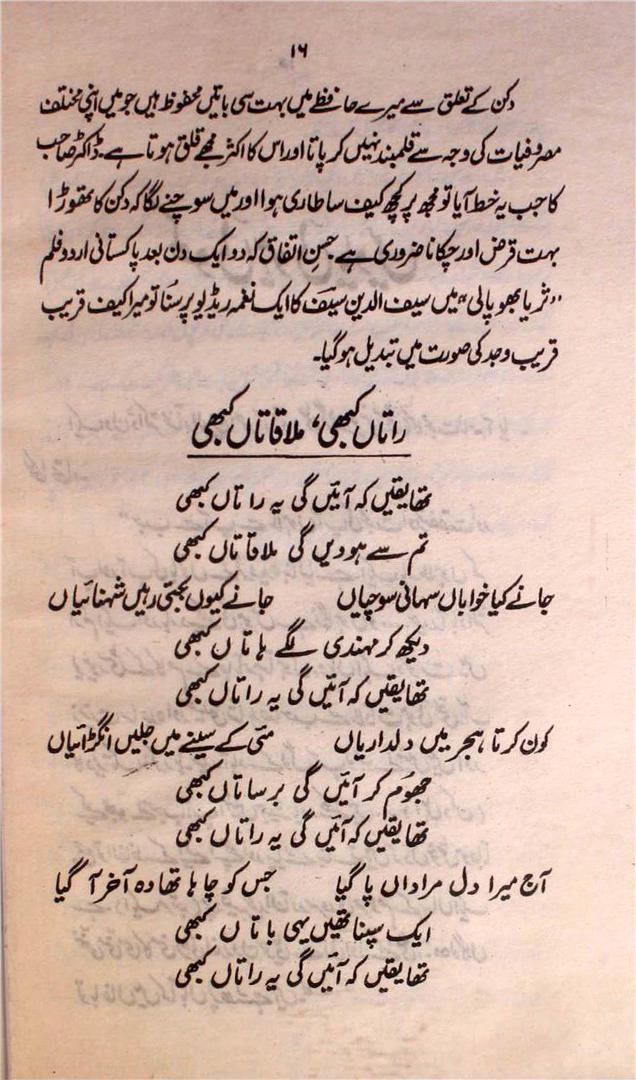 ۱۶
دکن کے تعلق سے میرے حافظے میں بہت سی باتیں محفوظ ہیں جو میں اپنی مختلف
مصروفیات کی وجہ سے قلمبند نہیں کر پاتا اور اس کا اکثر مجھے قلق ہوتا ہے۔ ڈاکٹر صاحب
کا جب یہ خط آیا تو مجھ پر کچھ کیف سا طاری ہوا اور میں سوچنے لگا کہ دکن کا تھوڑا
بہت قرض اور چکانا ضروری ہے۔ حسنِ اتفاق کہ دو ایک دن بعد پاکستانی اردو فلم
"ثریا بھوپالی" میں سیف الدین سیفؔ کا ایک نغمہ ریڈیو پر سنا تو میرا کیف قریب
قریب وجد کی صورت میں تبدیل ہو گیا۔
راتاں کبھی، ملاقاتاں کبھی
تھا یقیں کہ آئیں گی یہ راتاں کبھی
تم سے ہوویں گی ملاقاتاں کبھی
جانے کیا خواباں سہانی سوچیاں جانے کیوں بجتی رہیں شہنائیاں
دیکھ کر مہندی لگے ہاتاں کبھی
تھا یقیں کہ آئیں گی یہ راتاں کبھی
کون کرتا ہجر میں دلداریاں مئی کے سینے میں جلیں انگڑائیاں
جھوم کر آئیں گی برساتاں کبھی
تھا یقیں کہ آئیں گی یہ راتاں کبھی
آج میرا دل مراداں پا گیا جس کو چاہا تھا وہ آخر آ گیا
ایک سپنا تھیں یہی باتاں کبھی
تھا یقیں کہ آئیں گی یہ راتاں کبھی